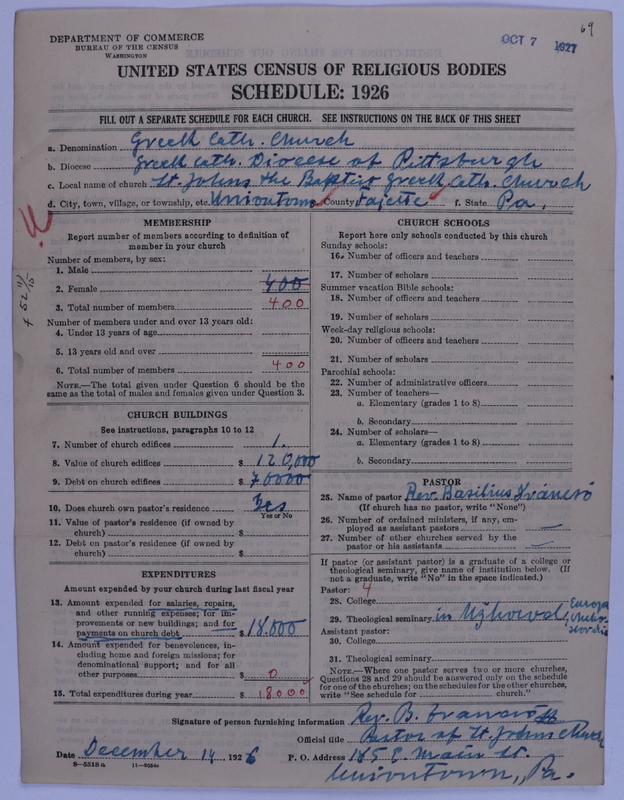 69
OCT 7 1927
DEPARTMENT OF COMMERCE
BUREAU OF THE CENSUS
WASHINGTON
UNITED STATES CENSUS OF RELIGIOUS BODIES
SCHEDULE: 1926
FILL OUT A SEPARATE SCHEDULE FOR EACH CHURCH. SEE INSTRUCTIONS ON THE BACK OF THIS SHEET
a. Denomination Greek Cath. Church
b. Diocese Greek Cath. Diocese of Pittsburgh
c. Local name of church St. Johns the Baptist Greek Cath. Church
d. City, town, village, or township, etc. Uniontown County Fayette f. State Pa.
MEMBERSHIP
Report number of members according to definition of
member in your church
Number of members, by sex:
1. Male
2. Female 400
3. Total number of members 400
Number of members under and over 13 years old:
4. Under 13 years of age
5. 13 years old and over
6. Total number of members 400
NOTE.—The total given under Question 6 should be the
same as the total of males and females given under Question 3.
CHURCH BUILDINGS
See instructions, paragraphs 10 to 12
7. Number of church edifices 1.
8. Value of church edifices $ 120,000
9. Debt on church edifices $ 70000
10. Does church own pastor's residence Yes
Yes or No
11. Value of pastor's residence (if owned by
church) $
12. Debt on pastor's residence (if owned by
church) $
EXPENDITURES
Amount expended by your church during last fiscal year
13. Amount expended for salaries, repairs,
and other running expenses; for im-
provements or new buildings; and for
payments on church debt $ 18.000
14. Amount expended for benevolences, in-
cluding home and foreign missions; for
denominational support; and for all
other purposes $ 0
15. Total expenditures during year $ 18000
CHURCH SCHOOLS
Report here only schools conducted by this church
Sunday schools:
16. Number of officers and teachers
17. Number of scholars
Summer vacation Bible schools:
18. Number of officers and teachers
19. Number of scholars
Week-day religious schools:
20. Number of officers and teachers
21. Number of scholars
Parochial schools:
22. Number of administrative officers
23. Number of teachers—
a. Elementary (grades 1 to 8)
b. Secondary
24. Number of scholars—
a. Elementary (grades 1 to 8)
b. Secondary
PASTOR
25. Name of pastor Rev. Basilius
(If church has no pastor, write "None")
26. Number of ordained ministers, if any, em-
ployed as assistant pastors —
27. Number of other churches served by the
pastor or his assistants —
If pastor (or assistant pastor) is a graduate of a college or
theological seminary, give name of institution below. (If
not a graduate, write "No" in the space indicated.)
Pastor: 4
28. College
29. Theological seminary in Europa
Assistant pastor:
30. College
31. Theological seminary
NOTE.—Where one pastor serves two or more churches,
Questions 28 and 29 should be answered only on the schedule
for one of the churches; on the schedules for the other churches,
write "See schedule for church."
Signature of person furnishing information Rev. B.
Official title Pastor of St. Johns church
Date December 14, 1926 P. O. Address 185 E. Main St.
8—5518a 11—9054a Uniontown, Pa.